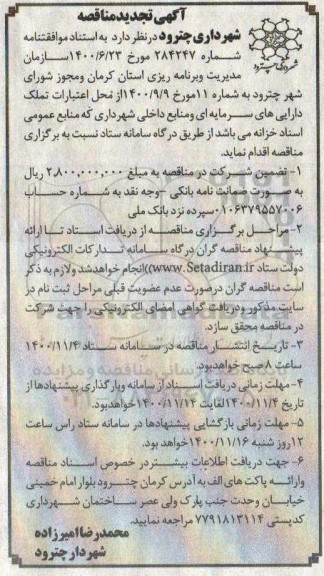 آگهی تجدید مناقصه
شهرداری چترود درنظر دارد به استناد موافقتنامه
شماره ۲۸۴۲۴۷ مورخ ۱۴۰۰/۶/۲۳ سازمان
مدیریت وبرنامه ریزی استان کرمان ومجوز شورای
شهر چترود به شماره ۱۱مورخ ۱۴۰۰/۹/۹از محل اعتبارات تملک
دارایی های سرمایه ای ومنابع داخلی شهرداری که منابع عمومی
اسناد خزانه می باشد از طریق درگاه سامانه ستاد نسبت به برگزاری
مناقصه اقدام نماید.
۱- تضمین شرکت در مناقصه به مبلغ ۲,۸۰۰,۰۰۰,۰۰۰ ریال
به صورت ضمانت نامه بانکی -وجه نقد به شماره حساب
۰۱۰۶۳۷۹۵۵۷۰۰۶سپرده نزد بانک ملی
۲- مراحل برگزاری مناقصه از دریافت استاد تا ارائه
پیشنهاد مناقصه گران درگاه سامانه تدارکات الکترونیکی
دولت ستاد (www.Setadiran.ir))انجام خواهدشد ولازم به ذکر
است مناقصه گران درصورت عدم عضویت قبلی مراحل ثبت نام در
سایت مذکور ودریافت گواهی امضای الکترونیکی را جهت شرکت
در مناقصه محقق سازد.
۳- تاریخ انتشار مناقصه در سامانه ستاد ۱۴۰۰/۱۱/۴
ساعت ۸صبح خواهدبود.
۴- مهلت زمانی دریافت اسناد از سامانه وبارگذاری پیشنهادها از
تاریخ ۱۴۰۰/۱۱/۴لغایت ۱۴۰۰/۱۱/۱۴خواهدبود.
۵- مهلت زمانی بازگشایی پیشنهادها در سامانه ستاد راس ساعت
۱۲روز شنبه ۱۴۰۰/۱۱/۱۶ خواهد بود.
۶- جهت دریافت اطلاعات بیشتر در خصوص اسناد مناقصه
وارائه پاکت های الف به آدرس کرمان چترود بلوار امام خمینی
خیابان وحدت جنب پارک ولی عصر ساختمان شهرداری
کدپستی ۷۷۹۱۸۱۳۱۱۴ مراجعه نمایید.
محمدرضا امیرزاده
شهردار چترود
شهرداری چترود